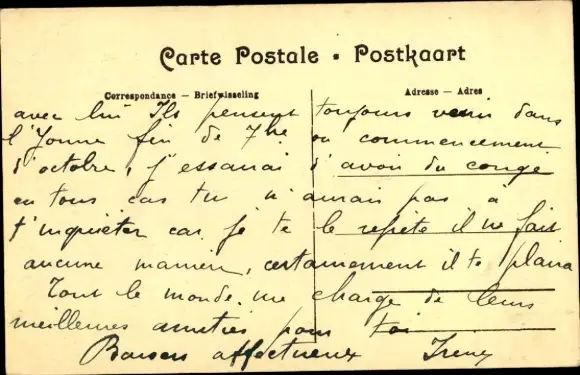 Carte Postale • Postkaart
Correspondance — Briefwisseling
Adresse — Adres
avec lui Ils pensent toujours venir dans
l'Yonne fin de 7bre ou commencement
d'octobre, j'essaurai d'avoir du congé
en tous cas tu n'aurais pas à
t'inquiéter car je te le répète il ne fait
aucune manière, certainement il te plaira
Tout le monde me charge de leurs
meilleures amitiés pour toi
Baisers affectueux Irène